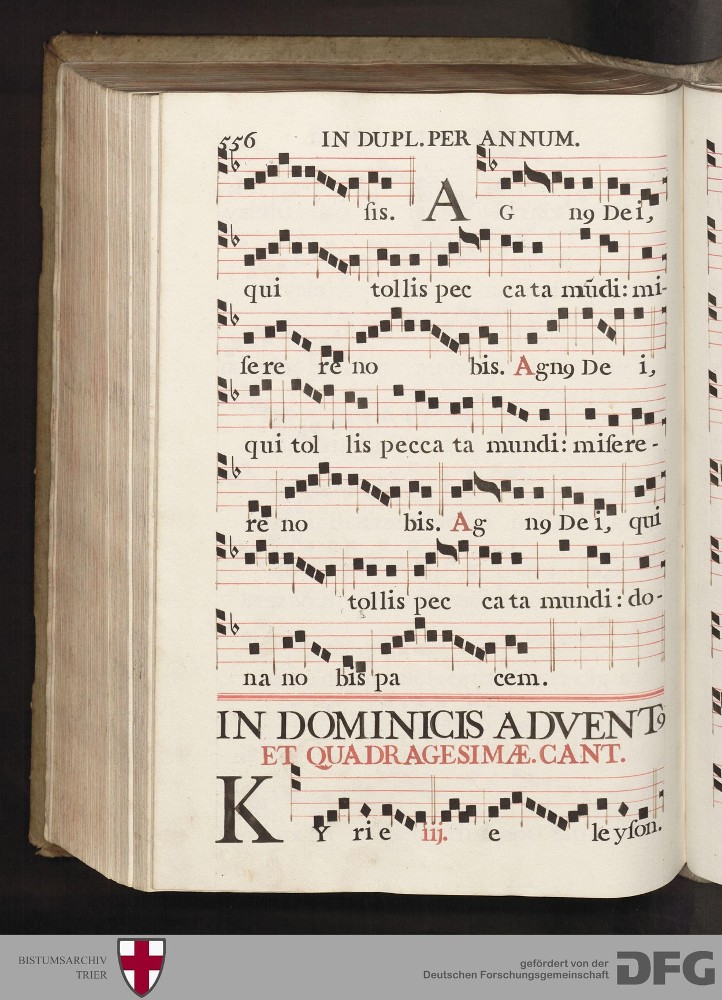 556 IN DUPL. PER ANNUM.
ſis. A G n9 Dei,
qui tollis pec cata mũdi: mi-
ſere re no bis. Agn9 De i,
qui tol lis pecca ta mundi: miſere-
re no bis. Ag n9 Dei, qui
tollis pec cata mundi: do-
na no bis pa cem.
IN DOMINICIS ADVENT9
ET QUADRAGESIMÆ. CANT.
KY ri e iij. e leyſon.
BISTUMSARCHIV
TRIER
gefördert von der
Deutschen Forschungsgemeinschaft
DFG